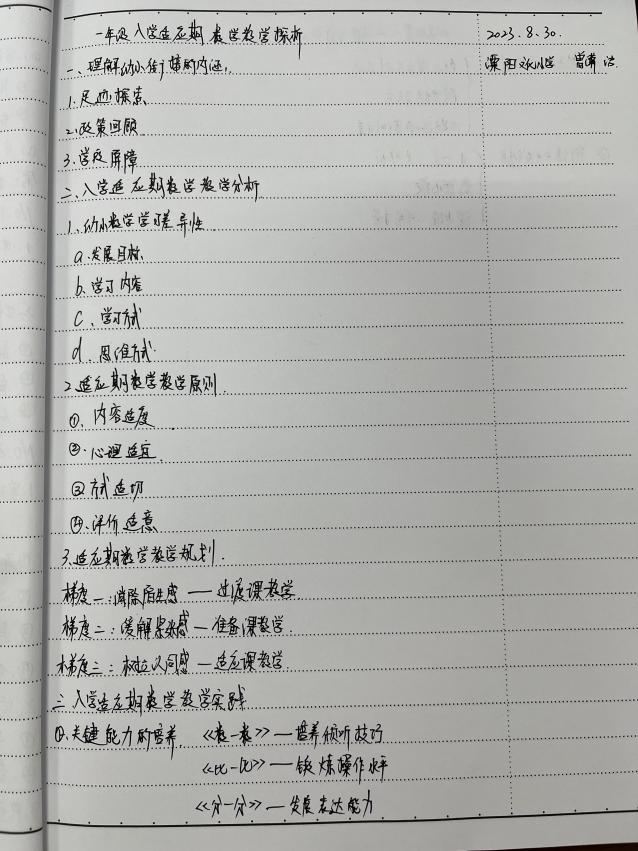 一年级入学适应期数学教学探析
2023.8.30.
一、理解幼小衔接的内涵.
溧阳 小学
1.足迹探索
2.政策回顾
3.学段屏障
二、入学适应期数学教学分析
1.幼小数学学习差异性
a.发展目标
b.学习内容
C.学习方式
d.思维方式
2.适应期数学教学原则
①.内容适度
②.心理适宜
③方式适切
④.评价适意
3.适应期数学教学规划.
梯度一:消除陌生感——过渡课教学
梯度二:缓解紧张感—准备课教学
梯度三:树立认同感—适应课教学
三、入学适应期数学教学实践
①.关键能力的培养.《数一数》—培养倾听技巧
《比一比》—锻炼操作水平
《分一分》—发展表达能力